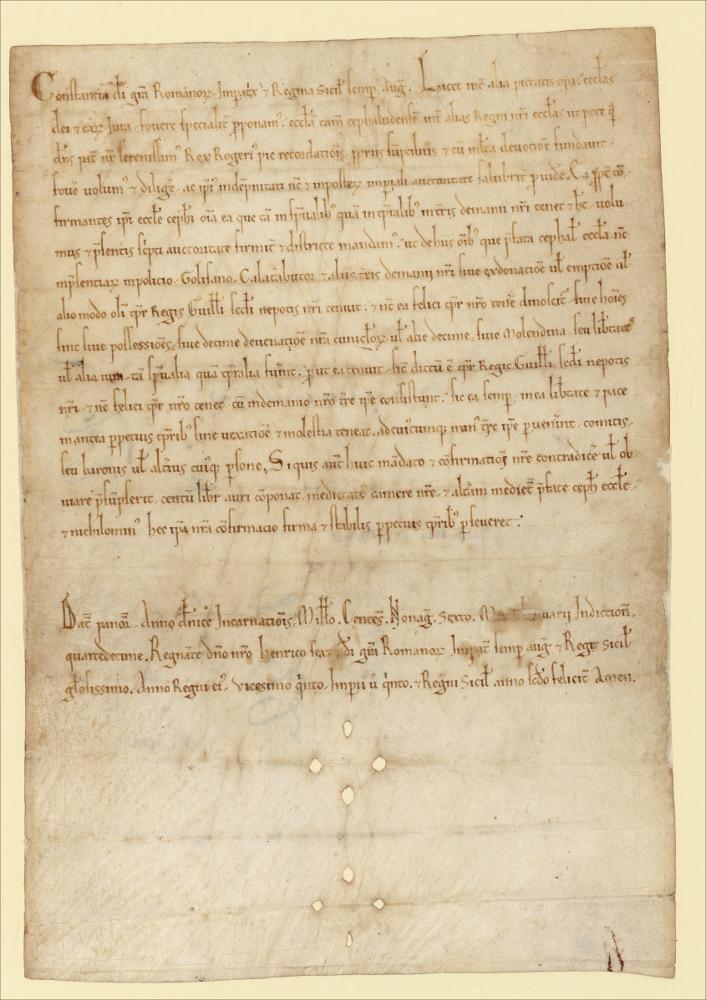 Constantia di grã Romanorꝝ Imꝑatͥx ⁊ Regina Sicil̃ semꝑ Aug̃. Licet int̃ alia pietatis oꝑa eccl̃as
dei ⁊ earꝝ Iura fovere specialit̃ ꝓponam᷒. eccl̃ã tam̃ cephaludensem̃ int̃ alias Regni nr̃i eccl̃as utpote q̃
dñs pat̃ nr̃ serenissim᷒ Rex Rogeri᷒ pie recordatiõis ꝓpriis sũptibus ⁊ cũ multa devotiõe fundavit
fovẽ volum᷒ ⁊ diligẽ. ac ip̃i indẽpnitati nc̃ ⁊ inposterꝝ imꝑiali auctoritate salubrit̃ ꝓvidẽ. Ea ꝓpt̃ cõ
firmantes ip̃i eccl̃e ceph̃i oĩa ea que tã in sp̃ualib᷒ quã in tp̃ralib᷒ in tr̃is demanii nr̃i tenet ⁊ hr̃. volu
mus ⁊ p̃sentis sc̃pti auctoritate firmit̃ ⁊ districte mandam᷒. ut de hiis oĩb᷒ que p̃fata cephal̃ eccl̃a nc̃
in p̃sentiarꝝ in policio. Golisano. Calatabutor ⁊ aliis tr̃is demanii nr̃i sive ex donatiõe ul̃ emptiõe ul̃
alio modo oli᷒ tp̃r Regis Guill̃i sc̃di nepotis nr̃i tenuit. ⁊ nc̃ ea felici tp̃r nr̃o tenẽ dinoscit᷒. sive hoĩes
sint sive possessiões. sive decime de venatiõe nr̃a cuniclorꝝ ul̃ alie decime. sive molendina. seu lib̃tates
ul̃ alia tã sp̃ualia quã tp̃ralia fuĩnt. ꝓut ea tenuit sic̃ dictũ ẽ tp̃r Regis Guill̃i sc̃di nepotis
nr̃i. ⁊ nc̃ felici tp̃r nr̃o tenet cũ in demanio nr̃o tr̃e ip̃e consistunt. sic ea semꝑ in ea lib̃tate ⁊ pace
in antea ꝑpetuis tp̃rib᷒ sine vexatiõe ⁊ molestia teneat. ad cui᷒cumqꝫ man᷒ tr̃e ip̃e ꝑvenĩnt. comitis.
seu baronis ul̃ alteri᷒ cui᷒qꝫ ꝑsone. Si quis aut̃ huic mãdato ⁊ cõfirmatiõi nr̃e contradicẽ ul̃ ob
viare p̃sũpserit. centũ libr̃ auri cõponat. medietatẽ camere nr̃e. ⁊ alt̃am mediet̃ p̃fate ceph̃ eccl̃e
⁊ nichilomin᷒ hec ip̃a nr̃a cõfirmacio firma ⁊ stabilis ꝑpetuis tp̃rib᷒ ꝑseveret.
Dat̃ panor̃. Anno dñice Incarnatiõis. Mill̃o. Centes̃. Nonag̃. Sexto. Indictioñ.
quartedecime. Regnante dño nr̃o henrico sexto di grã Romanorꝝ Imꝑat̃ semꝑ aug̃ ⁊ Rege Sicil̃
gl̃osissimo. Anno Regni ei᷒. vicesimo q̃nto. Imꝑii ũ q̃nto. ⁊ Regni Sicil̃ anno sc̃do felicit̃ Amen.